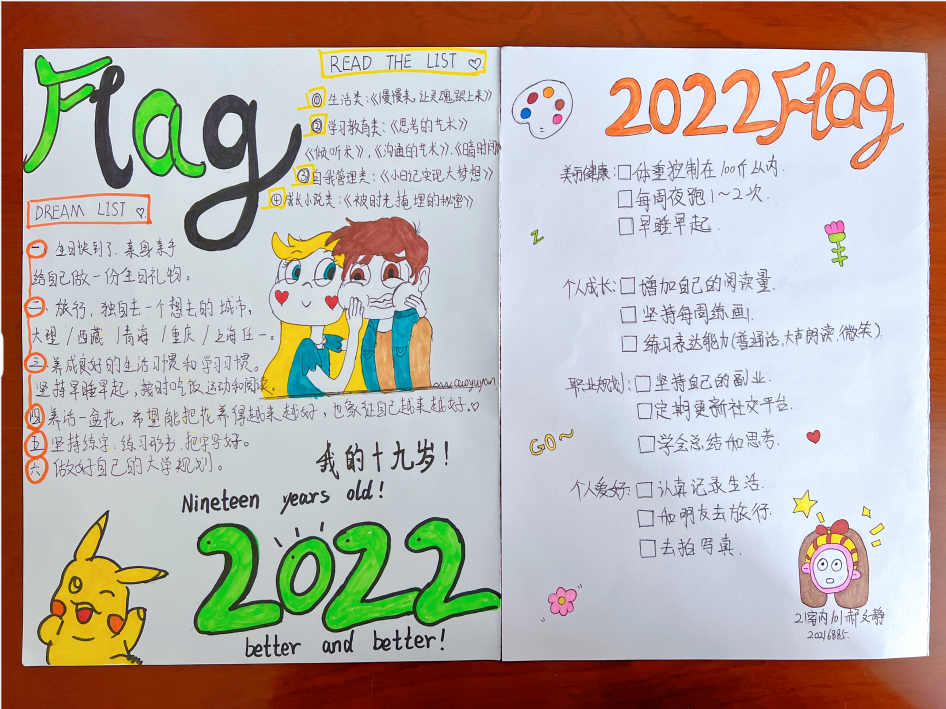 Flag
READ THE LIST
① 生活类:《慢慢来,让灵魂跟上来》
② 学习教育类:《思考的艺术》
《倾听术》,《沟通的艺术》,《暗时间》
③ 自我管理类:《小日记实现大梦想》
④ 成长小说类:《被时光掩埋的秘密》
DREAM LIST
一、生日快到了,亲身亲手
给自己做一份生日礼物。
二、旅行,独自去一个想去的城市,
大理/西藏/青海/重庆/上海任一。
三、养成良好的生活习惯和学习习惯。
坚持早睡早起,按时吃饭运动和阅读。
四、养活一盆花,希望能把花养得越来越好,也象征自己越来越好。
五、坚持练字,练习形书,把字写好。
六、做好自己的大学规划。
我的十九岁!
Nineteen years old!
2022
better and better!
2022Flag
美丽健康:□体重控制在100斤以内.
□每周夜跑1~2次.
□早睡早起.
Z
个人成长:□增加自己的阅读量.
□坚持每周练画.
□练习表达能力(普通话,大声朗读,微笑).
职业规划:□坚持自己的副业.
□定期更新社交平台.
GO~
□学会总结和思考.
个人爱好:□认真记录生活.
□和朋友去旅行.
□去拍写真.
21室内101郝文静